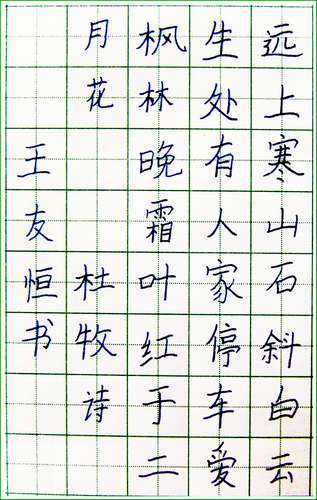 远上寒山石斜白云
生处有人家停车爱
枫林晚霜叶红于二
月花 杜牧诗
王友恒书